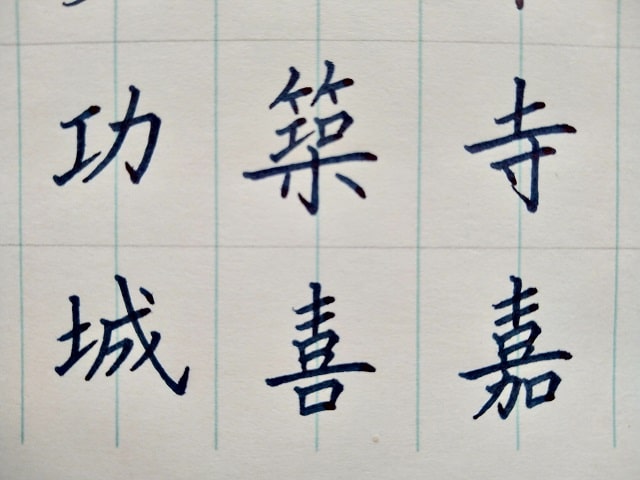 功築寺
城喜嘉